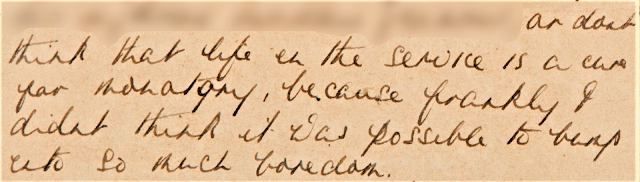 or dont
think that life in the service is a cure
for monotony, because frankly I
didnt think it was possible to bump
into so much boredom.